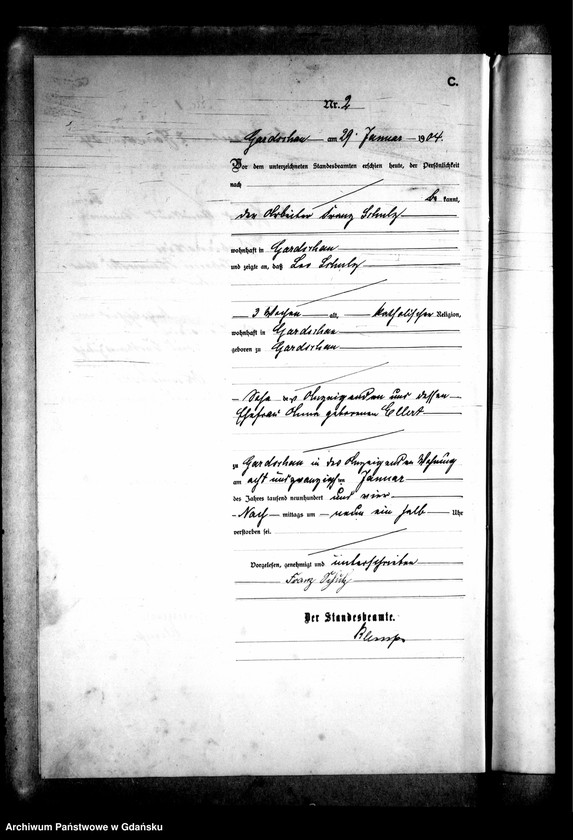 C.
Nr. 2
Gardschau am 29. Januar 1904.
Vor dem unterzeichneten Standesbeamten erschien heute, der Persönlichkeit
nach
bekannt,
der Arbeiter Franz Schulz
wohnhaft in Gardschau
und zeigte an, daß Leo Schulz
3 Wochen alt, katholischer Religion,
wohnhaft in Gardschau
geboren zu Gardschau
Sohn des Anzeigenden und dessen
Ehefrau Anna geborenen Ellert
zu Gardschau in des Anzeigenden Wohnung
am acht und zwanzigsten Januar
des Jahres tausend neunhundert und vier
Nach mittags um neun ein halb Uhr
verstorben sei.
Vorgelesen, genehmigt und unterschrieben
Franz Schulz
Der Standesbeamte.
Archiwum Państwowe w Gdańsku